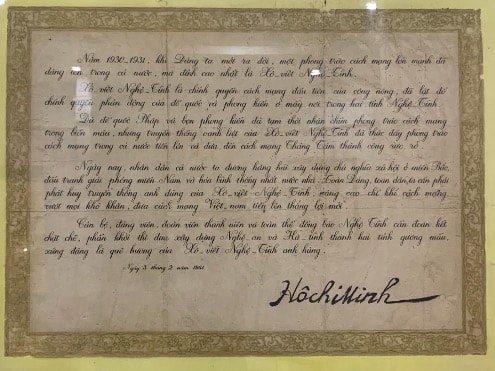 Năm 1930-1931, khi Đảng ta mới ra đời, một phong trào cách mạng lớn mạnh đã
dâng lên trong cả nước, mà đỉnh cao nhất là Xô-viết Nghệ-Tĩnh.
Xô-viết Nghệ-Tĩnh là chính quyền cách mạng đầu tiên của công nông, đã lật đổ
chính quyền phản động của đế quốc và phong kiến ở mấy nơi trong hai tỉnh Nghệ-Tĩnh
Dù đế quốc Pháp và bọn phong kiến đã tạm thời nhận chìm phong trào cách mạng
trong biển máu, nhưng truyền thống oanh liệt của Xô-viết Nghệ-Tĩnh đã thúc đẩy phong trào
cách mạng trong cả nước tiến lên và đưa đến cách mạng Tháng Tám thành công rực rỡ.
Ngày nay, nhân dân cả nước ta đương hăng hái xây dựng chủ nghĩa xã hội ở miền Bắc,
đấu tranh giải phóng miền Nam và hòa bình thống nhất nước nhà. Toàn Đảng, toàn dân, ta cần phải
phát huy truyền thống anh dũng của Xô-viết Nghệ-Tĩnh, nâng cao chí khí cách mạng
vượt mọi khó khăn, đưa cách mạng Việt-nam tiến lên thắng lợi mới.
Cán bộ, đảng viên, đoàn viên thanh niên và toàn thể đồng bào Nghệ Tĩnh cần đoàn kết
chặt chẽ, phấn khởi thi đua xây dựng Nghệ-an và Hà-tĩnh thành hai tỉnh gương mẫu,
xứng đáng là quê hương của Xô-viết Nghệ-Tĩnh anh hùng.
Ngày 3 tháng 2 năm
Hồ Chí Minh